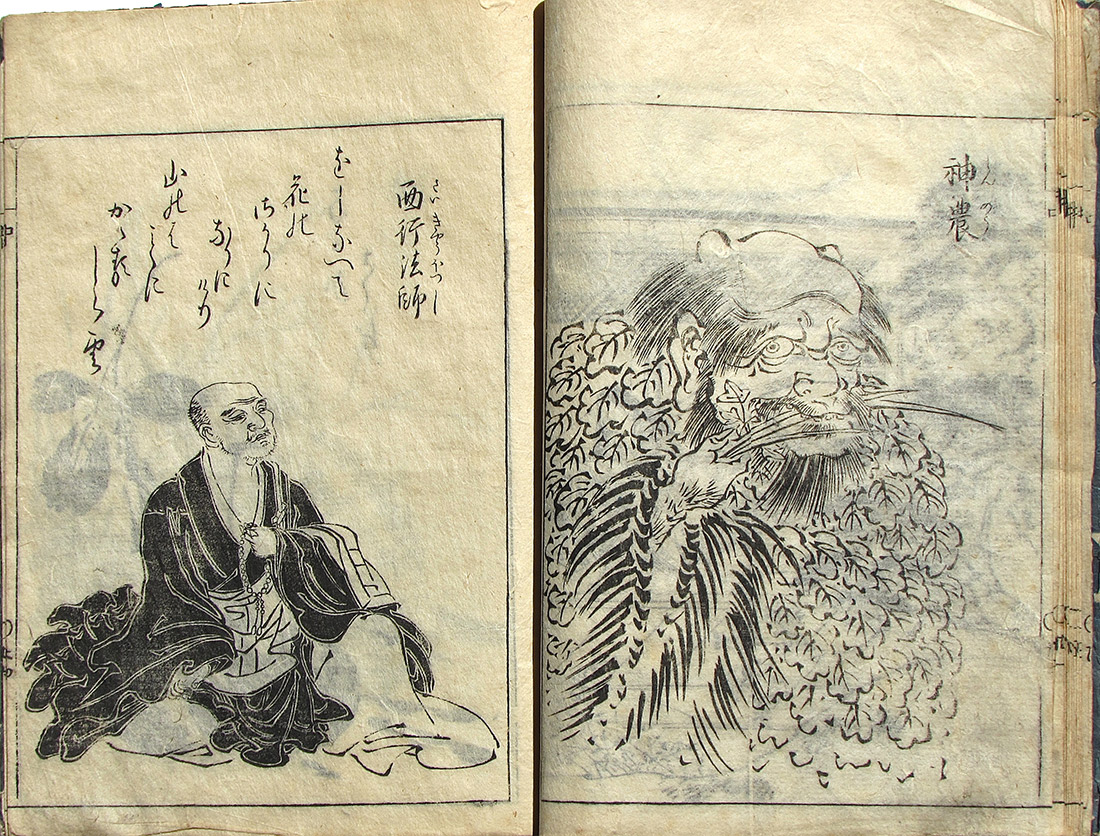 神農
しんのう
西行法師
さいきやうほつし
をしなへて
花の
さかりに
なりに
けり
山のは
ことに
かゝる
しら雲